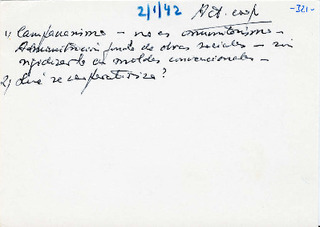 2/1/42 Act. coop -321-
1) Campananismo - no es comunitarismo -
Administración fondo de obras sociales - sin
rigidizarlo en moldes convencionales -
2) Qué se cooperativiza?